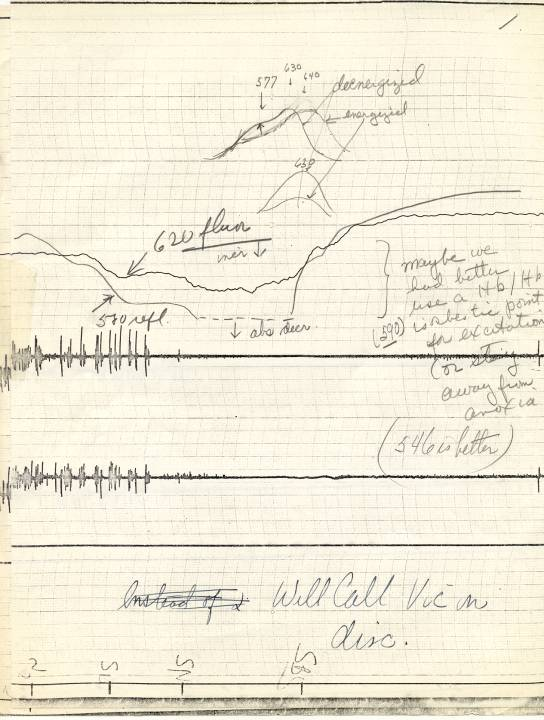 630
577
640
deenergized
energized
630
620 fluor
incr ↓
570 refl.
↓ abs decr.
maybe we
had better
use a Hb/Hb
(590) isosbestic point
for excitation
(or stay
away from
anoxia
(546 is better)
Instead of
Will Call Vic on
disc.